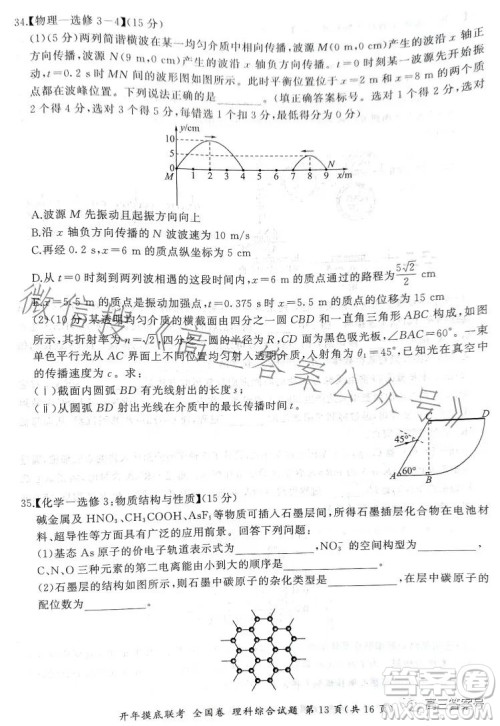 34.【物理—选修3-4】(15分)
(1)(5分)两列简谐横波在某一均匀介质中传播,波源M(0 m,0 cm)产生的波沿x轴正
方向传播,波源N(9 m,0 cm)产生的波沿x轴负方向传播。t=0时刻某一波源先开始振
动,t=0.2 s时MN间的波形图如图所示。此时平衡位置在x=2 m和x=8 m的两个质
点都在波峰位置。下列说法正确的是________。(填正确答案标号。选对1个得2分,选对
2个得4分,选对3个得5分,每选错1个扣3分,最低得分为0分)
y/cm
10
5
0
M 1 2 3 4 5 6 7 8 9 x/m
A.波源M先振动且起振方向向上
B.沿x轴负方向传播的N波波速为10 m/s
C.再经0.2 s,x=9 m的质点纵坐标为5 cm
D.从t=0时刻到两列波相遇的这段时间内,x=0.5 m的质点通过的路程为5√2/2 cm
E.x=5.5 m的质点是振动加强点,t=0.375 s时x=5.5 m的质点位移为15 cm
(2)(10分)某透明均匀介质的横截面由四分之一圆CBD和一直角三角形ABC构成,如图
所示。介质折射率n=√2,四分之一圆半径为R,CD面为黑色吸光板,∠ABC=60°。一束
单色平行光从AC界面上方射入透明介质,入射角为θ₁=45°。已知光在真空中
的速度为c。求:
(ⅰ)截面内圆弧BD有光线射出的长度s;
(ⅱ)从圆弧BD射出光线在介质中的最长传播时间t。
C D
45°
60°
A B
35.【化学—选修3:物质结构与性质】(15分)
碱金属及HNO₃、CH₃COOH、AsF₅等物质可插入石墨层间,所得石墨插层化合物在电池材
料、超导性等方面具有广泛的应用前景。回答下列问题:
(1)基态As原子的价电子轨道表示式为________,NO₃⁻的空间构型为________,
C、N、O三种元素的第二电离能由大到小的顺序是________。
(2)石墨层的结构如图所示,则石墨中碳原子的杂化类型为________,碳原子的
配位数为________。
开年摸底联考 全国卷 理科综合试题 第13页(共16页)
微信搜《高三答案公众号》
高三答案号